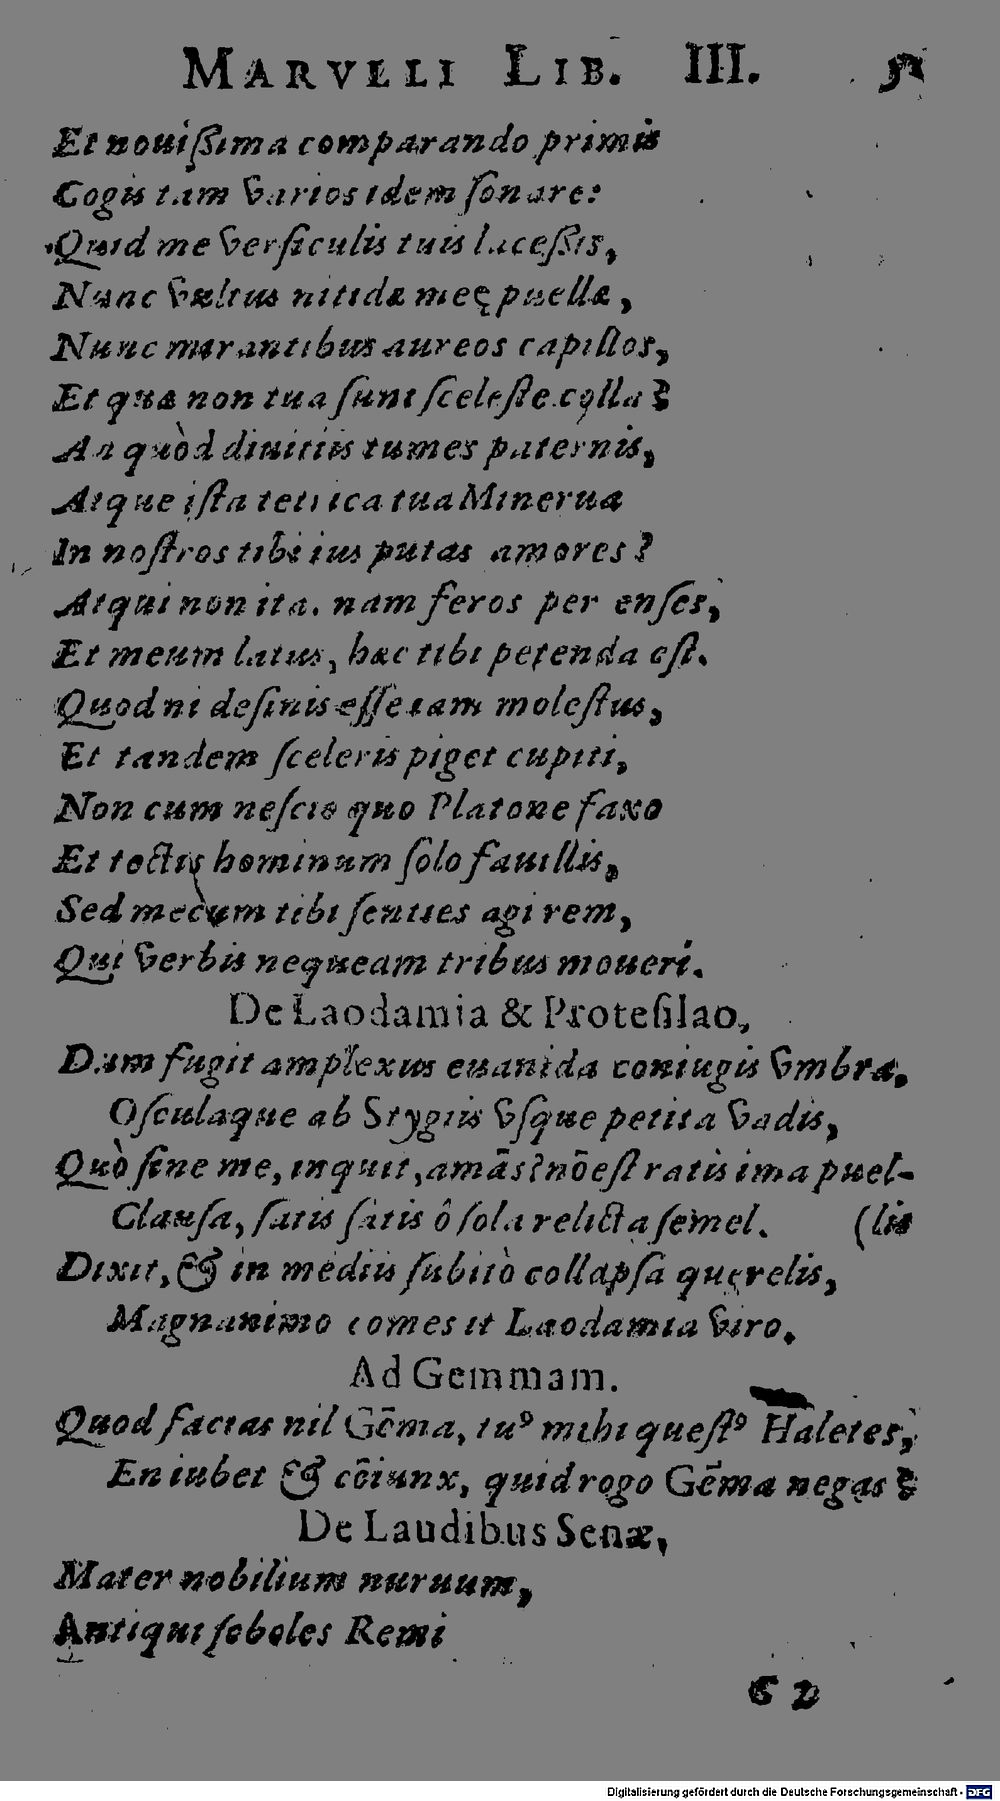 MARVLLI LIB. III.
Et nouißima comparando primis
Cogis tam varios idem ſonare:
Quid me verſiculis tuis laceßis,
Nunc vultus nitidæ meę puellæ,
Nunc mirantibus aureos capillos,
Et quæ non tua ſunt ſceleſte colla?
An quòd diuitiis tumes paternis,
Atque iſta tetrica tua Minerua
In noſtros tibi ius putas amores?
Atqui non ita. nam feros per enſes,
Et meum latus, hæc tibi petenda eſt.
Quod ni deſinis eſſe iam moleſtus,
Et tandem ſceleris piget cupiti,
Non cum neſcio quo Platone faxo
Et tectis hominum ſolo fauillis,
Sed mecum tibi ſenties agi rem,
Qui verbis nequeam tribus moueri.
De Laodamia & Proteſilao,
Dum fugit amplexus euanida coniugis vmbra.
Oſculaque ab Stygiis vſque petita vadis,
Quò ſine me, inquit, amãs? nõ eſt ratis ima puel-
Clauſa, ſatis ſatis ô ſola relicta ſemel. (lis
Dixit, & in mediis ſubitò collapſa querelis,
Magnanimo comes it Laodamia viro.
Ad Gemmam.
Quod facias nil Gẽma, tuꝰ mihi queſtꝰ Haletes,
En iubet & cõiunx, quid rogo Gẽma negas?
De Laudibus Senæ,
Mater nobilium nuruum,
Antiqui ſoboles Remi
Digitalisierung gefördert durch die Deutsche Forschungsgemeinschaft - DFG